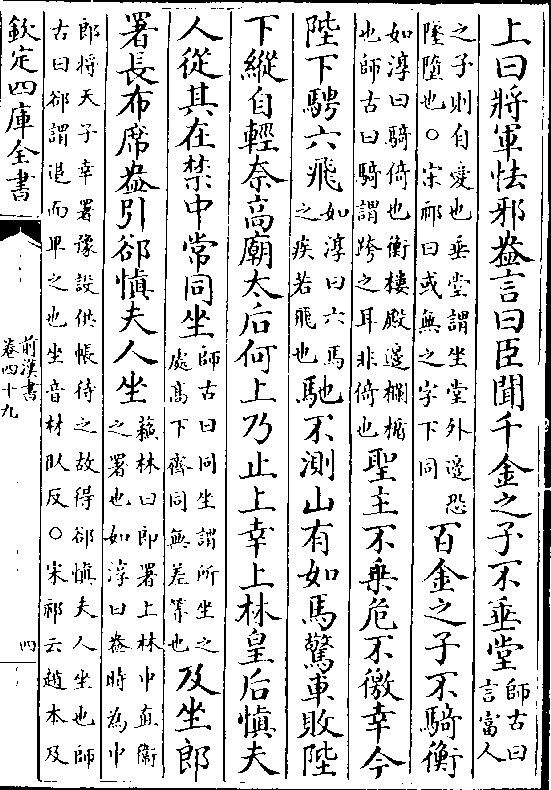 上曰將軍怯邪盎言曰臣聞千金之子不垂堂
師古曰
言富人
之子則自愛也垂堂謂坐堂外邊恐
隆墮也○宋祁曰或無之字下同
百金之子不騎衡
如淳曰騎倚也衡樓殿邊欄楯
也師古曰騎謂跨之耳非倚也
聖主不乗危不徼幸今
陛下騁六飛
如淳曰六馬
之疾若飛也
馳不測山有如馬驚車敗陛
下縱自輕奈高廟太后何上乃止上幸上林皇后慎夫
人從其在禁中常同坐
師古曰同坐謂所坐之
處髙下齊同無差等也
及坐郎
署長布席盎引郤慎夫人坐
蘇林曰郎署上林中直衞
之署也如淳曰盎時為中
郎將天子幸署豫設供帳待之故得郤慎夫人坐也師
古曰郤謂退而卑之也坐音材臥反○宋祁云趙本及
欽定四庫全書
前漢書
卷四十九
四